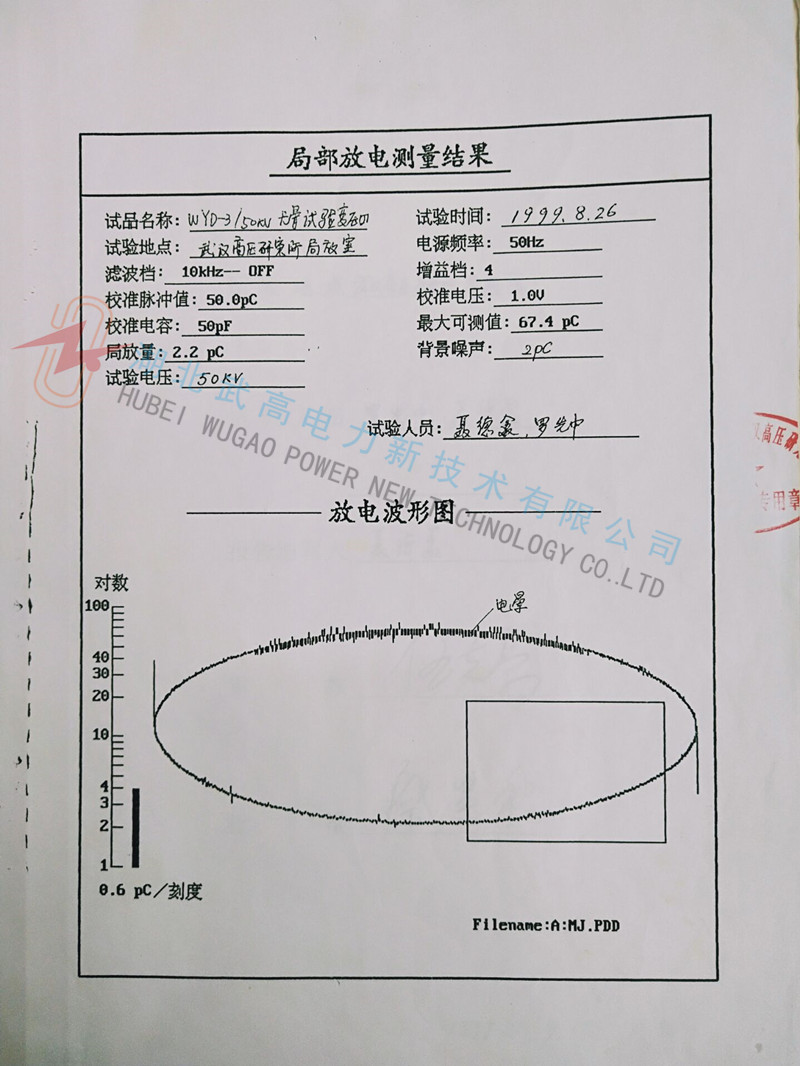 局部放电测量结果
试品名称：WYD-3/50KV 试验变压
试验时间：1999.8.26
试验地点：武汉高压研究所局放室
电源频率：50Hz
滤波档：10kHz-- OFF
增益档：4
校准脉冲值：50.0pC
校准电压：1.0V
校准电容：50pF
最大可测值：67.4 pC
局放量：2.2 pC
背景噪声：2pC
试验电压：50KV
试验人员：聂德鑫，罗先中
湖北武高电力新技术有限公司
HUBEI WUGAO POWER NEW TECHNOLOGY CO.,LTD
高压研
专用章
放电波形图
对数
电晕
100
40
30
20
10
4
3
2
1
0.6 pC/刻度
Filename:A:MJ.PDD